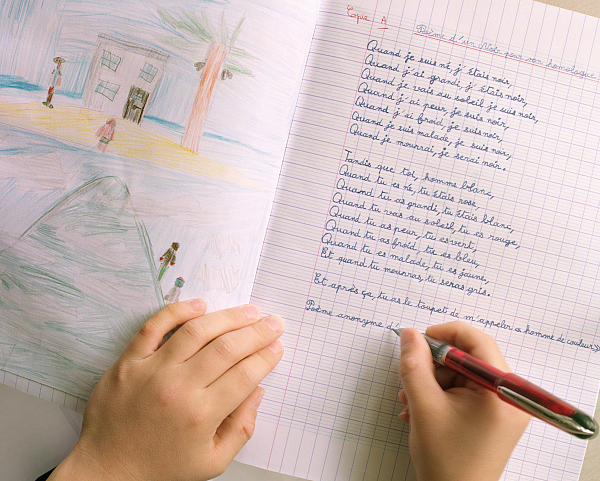 Copie A
Poème d'un Noir pour son homologue
Quand je suis né, j'étais noir,
Quand j'ai grandi, j'étais noir,
Quand je vais au soleil je suis noir,
Quand j'ai peur, je suis noir,
Quand j'ai froid, je suis noir,
Quand je suis malade, je suis noir,
Quand je mourrai, je serai noir.
Tandis que toi, homme blanc,
Quand tu es né, tu étais rose,
Quand tu as grandi, tu étais blanc,
Quand tu vas au soleil, tu es rouge,
Quand tu as peur, tu es vert,
Quand tu as froid, tu es bleu,
Quand tu es malade, tu es jaune,
Et quand tu mourras, tu seras gris.
Et après ça, tu as le toupet de m'appeler « homme de couleur »
Poème anonyme d